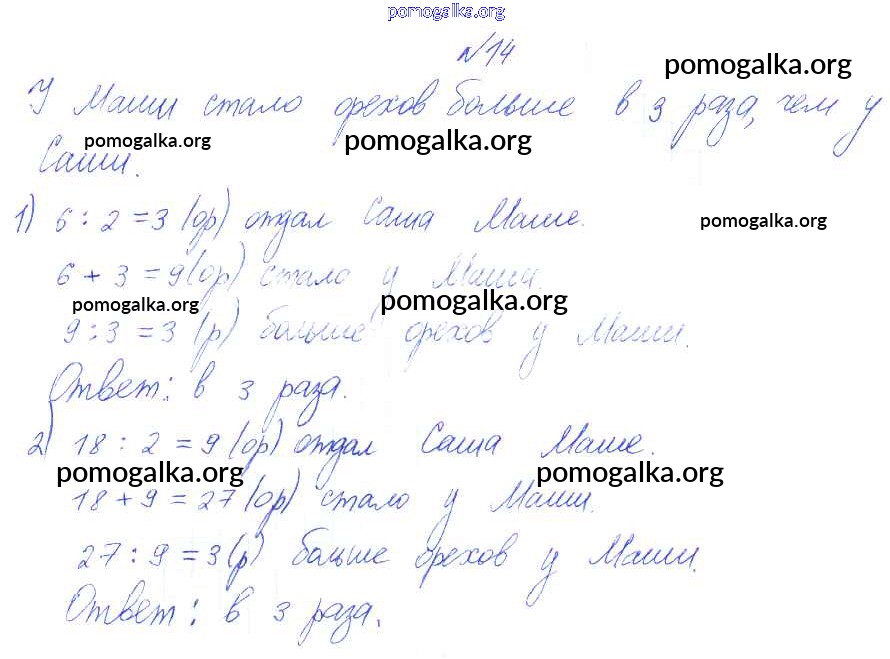 pomogalka.org
№14
pomogalka.org
У Маши стало орехов больше в 3 раза, чем у
pomogalka.org pomogalka.org
Саши.
1) 6 : 2 = 3 (ор) отдал Саша Маше.
pomogalka.org
6 + 3 = 9 (ор) стало у Маши.
pomogalka.org pomogalka.org
9 : 3 = 3 (р) больше орехов у Маши.
Ответ: в 3 раза.
2) 18 : 2 = 9 (ор) отдал Саша Маше.
pomogalka.org pomogalka.org
18 + 9 = 27 (ор) стало у Маши.
27 : 9 = 3 (р) больше орехов у Маши.
Ответ: в 3 раза.